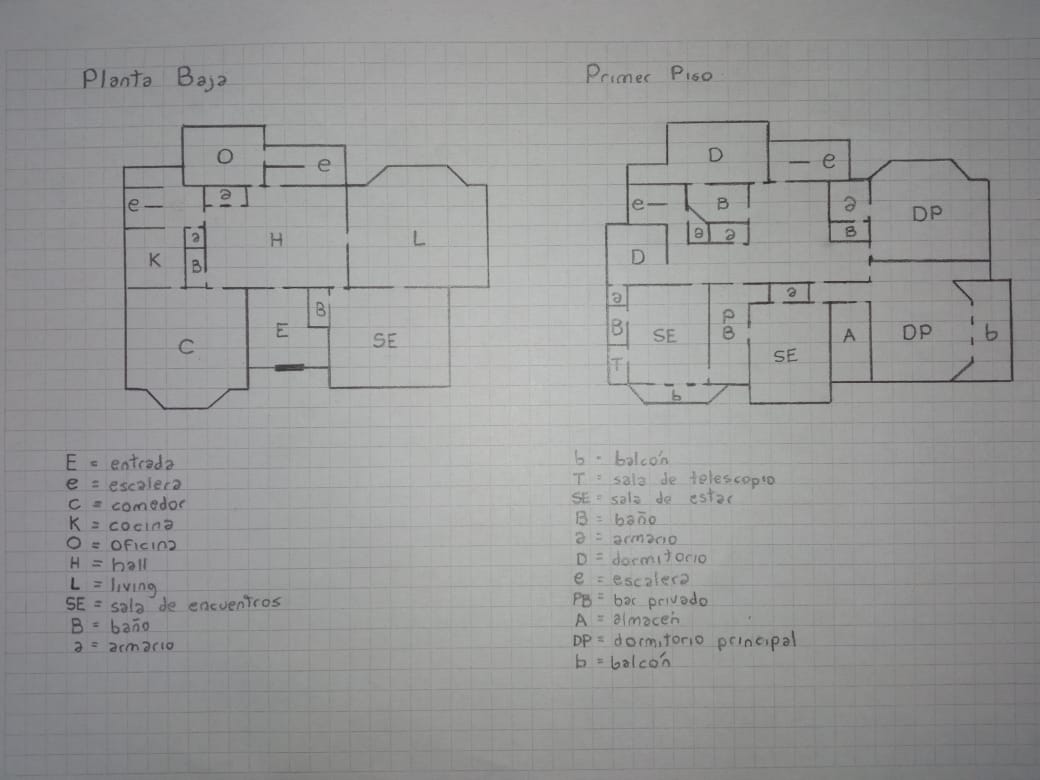 Planta Baja
O
e
a
e
a
H
L
K
B
B
E
C
SE
E = entrada
e = escalera
C = comedor
K = cocina
O = oficina
H = hall
L = living
SE = sala de encuentros
B = baño
a = armario
Primer Piso
D
e
e
B
a
DP
a
a
B
D
a
a
P
B
B
SE
A
DP
b
SE
T
b
b = balcón
T = sala de telescopio
SE = sala de estar
B = baño
a = armario
D = dormitorio
e = escalera
PB = bar privado
A = almacén
DP = dormitorio principal
b = balcón